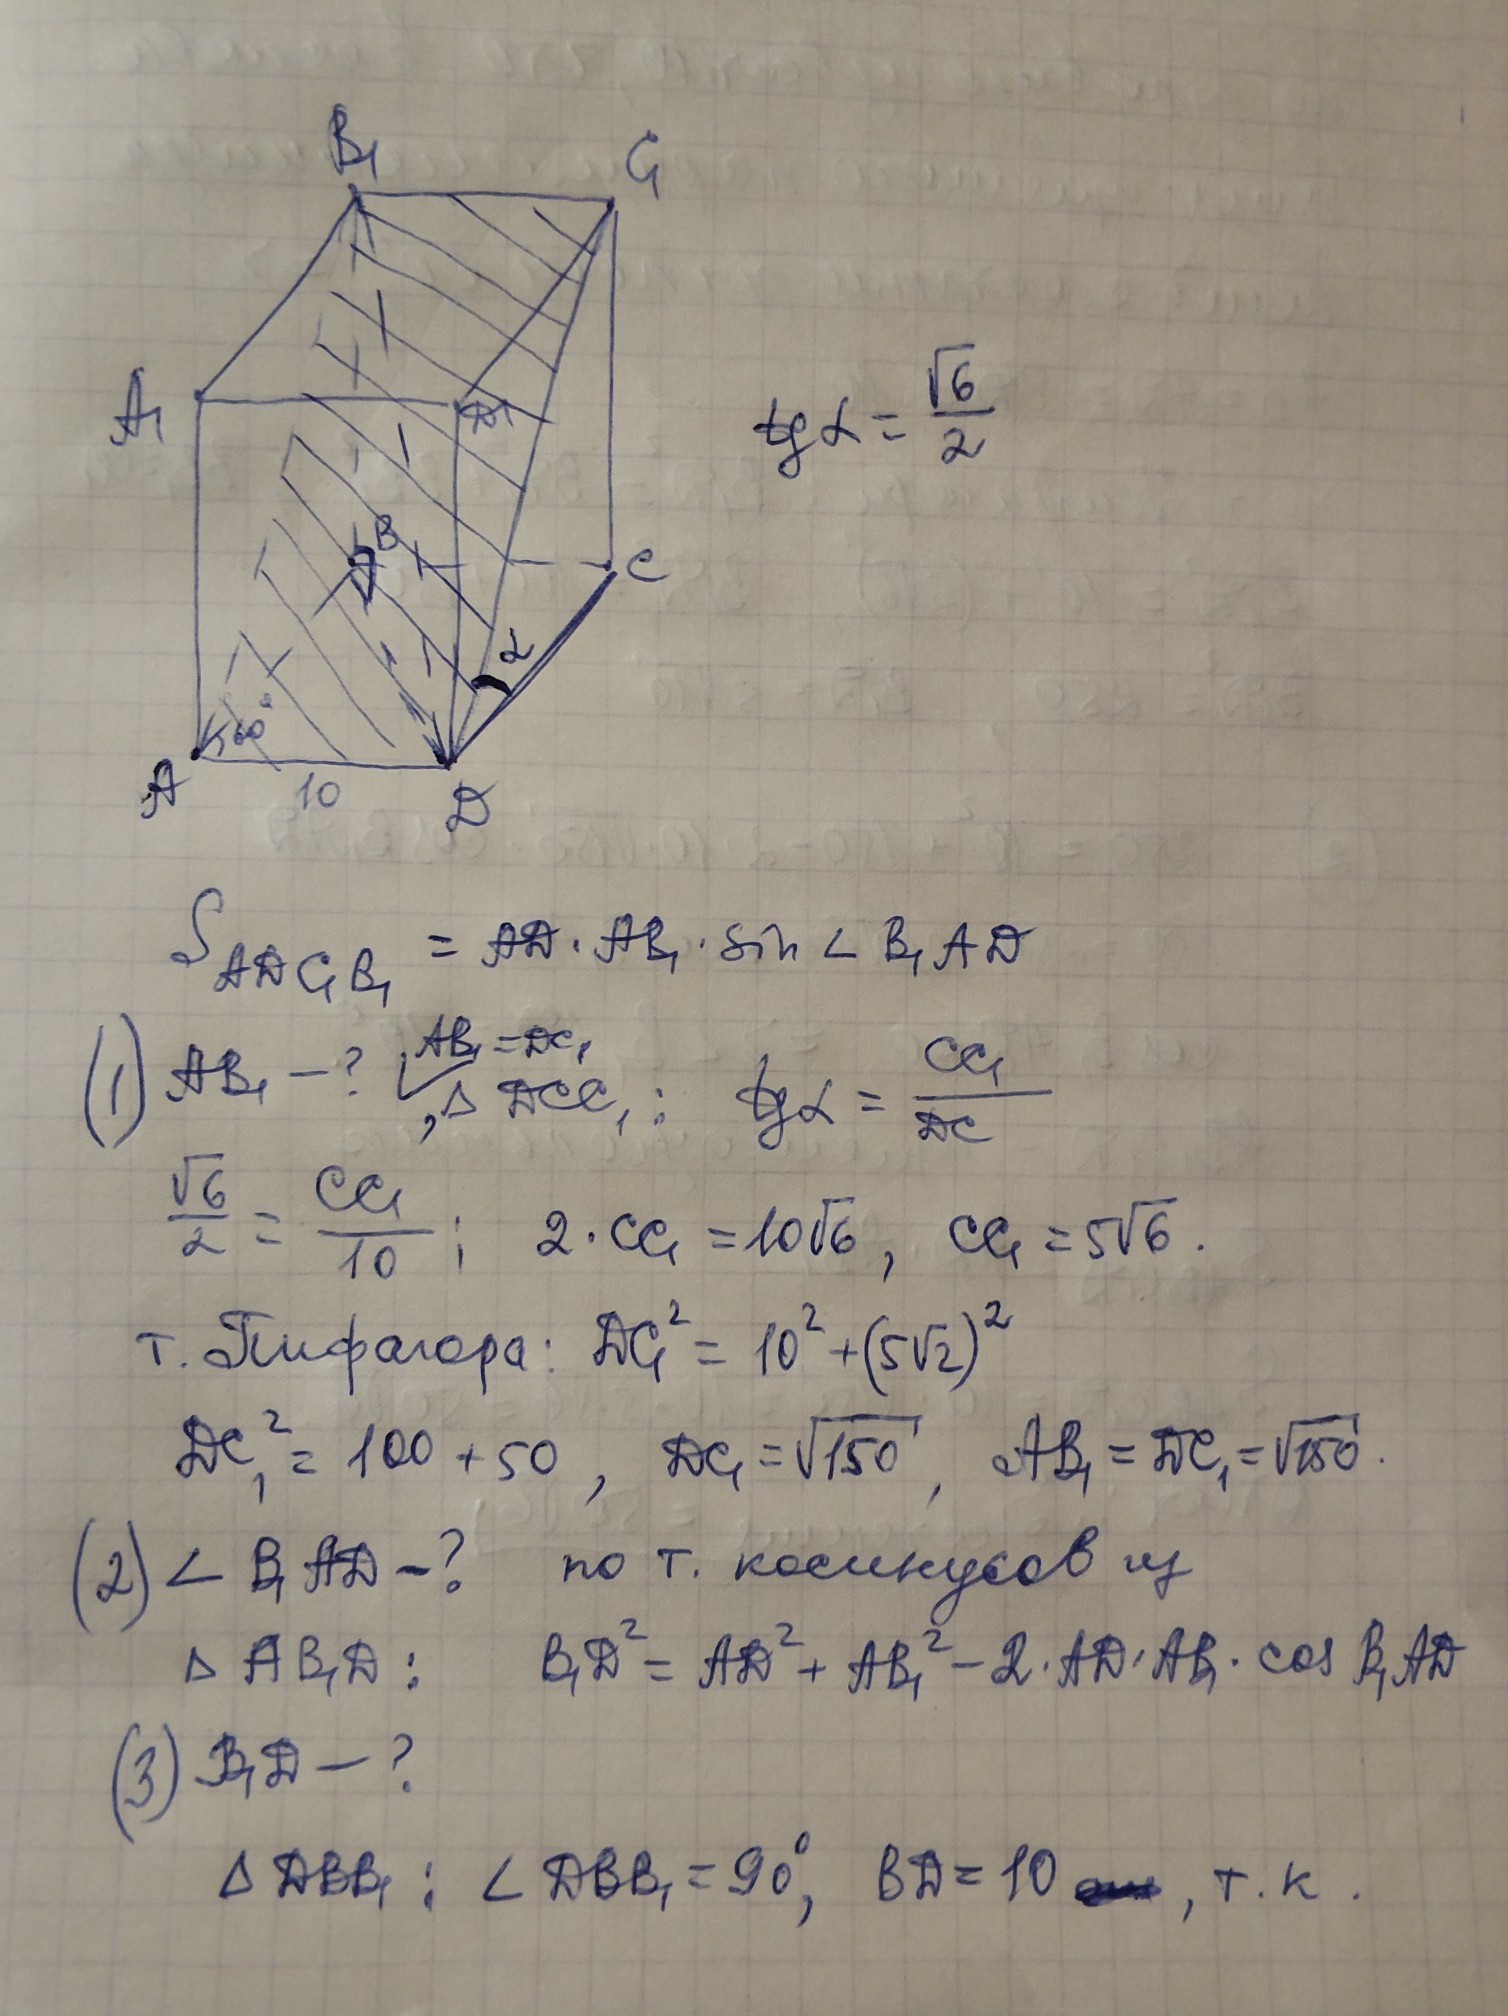 B₁ C₁
A₁ D₁
tgα = √6/2
B C
α
60°
A 10 D
S ADC₁B₁ = AD · AB₁ · sin ∠ B₁AD
(1) AB₁ – ? AB₁ = DC₁
, Δ DCC₁ : tgα = CC₁/DC
√6/2 = CC₁/10 ; 2 · CC₁ = 10√6 , CC₁ = 5√6 .
т. Пифагора : DC₁² = 10² + (5√2)²
DC₁² = 100 + 50 , DC₁ = √150 , AB₁ = DC₁ = √150 .
(2) ∠ B₁AD – ? по т. косинусов из
Δ AB₁D : B₁D² = AD² + AB₁² – 2 · AD · AB₁ · cos B₁AD
(3) B₁D – ?
Δ DBB₁ : ∠ DBB₁ = 90° , BD = 10 , т. к .